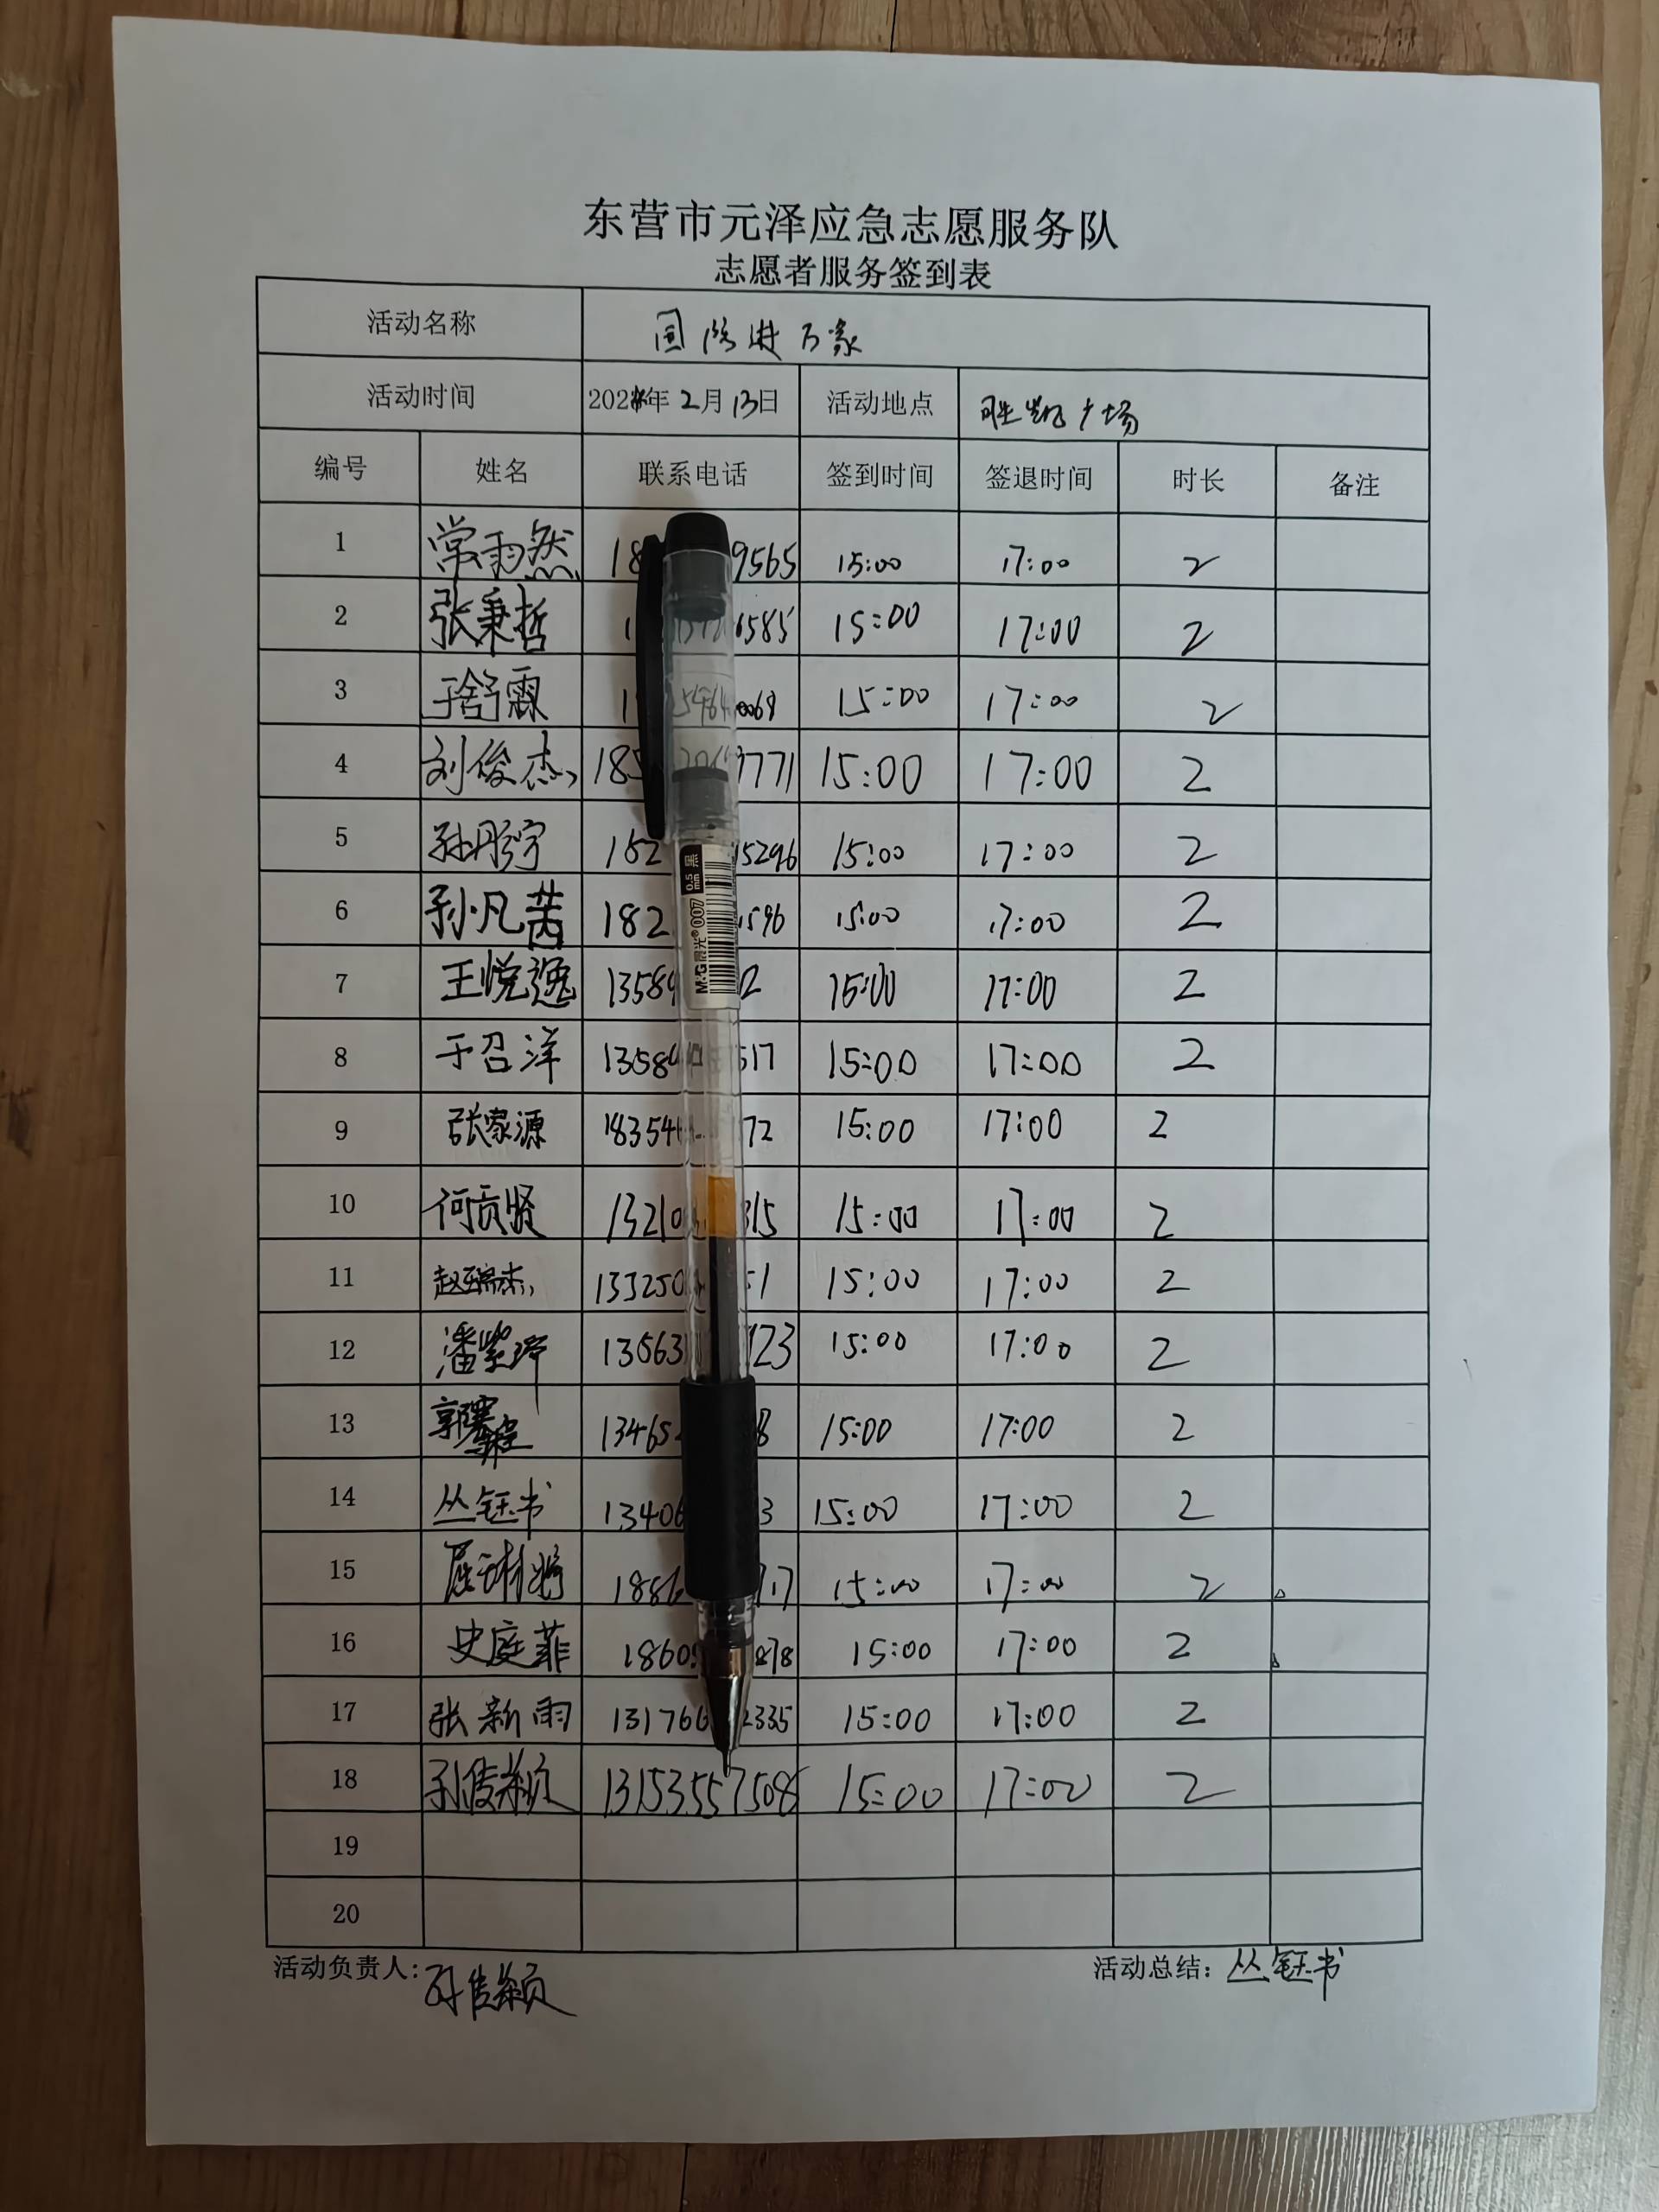 东营市元泽应急志愿服务队
志愿者服务签到表
活动名称 国防进万家
活动时间 202 年2月13日 活动地点 胜凯广场
编号 姓名 联系电话 签到时间 签退时间 时长 备注
1 常雨然 18 9565 15:00 17:00 2
2 张秉哲 1 6585 15:00 17:00 2
3 于舒霖 1 0068 15:00 17:00 2
4 刘俊杰 185 9771 15:00 17:00 2
5 孙丹宇 182 15296 15:00 17:00 2
6 孙凡茜 182 1596 15:00 17:00 2
7 王悦逸 13589 2 15:00 17:00 2
8 于召洋 13589 517 15:00 17:00 2
9 张家源 18354 72 15:00 17:00 2
10 何贡贤 13210 315 15:00 17:00 2
11 赵瑞杰 133250 51 15:00 17:00 2
12 潘紫 13563 123 15:00 17:00 2
13 郭 13465 8 15:00 17:00 2
14 丛钰书 13406 3 15:00 17:00 2
15 屈 1886 717 15:00 17:00 2
16 史庭菲 1860 878 15:00 17:00 2
17 张新雨 131766 2335 15:00 17:00 2
18 孙俊颖 13153557508 15:00 17:00 2
19
20
活动负责人: 孙俊颖 活动总结: 丛钰书
M&G 晨光® 007 0.5mm 黑